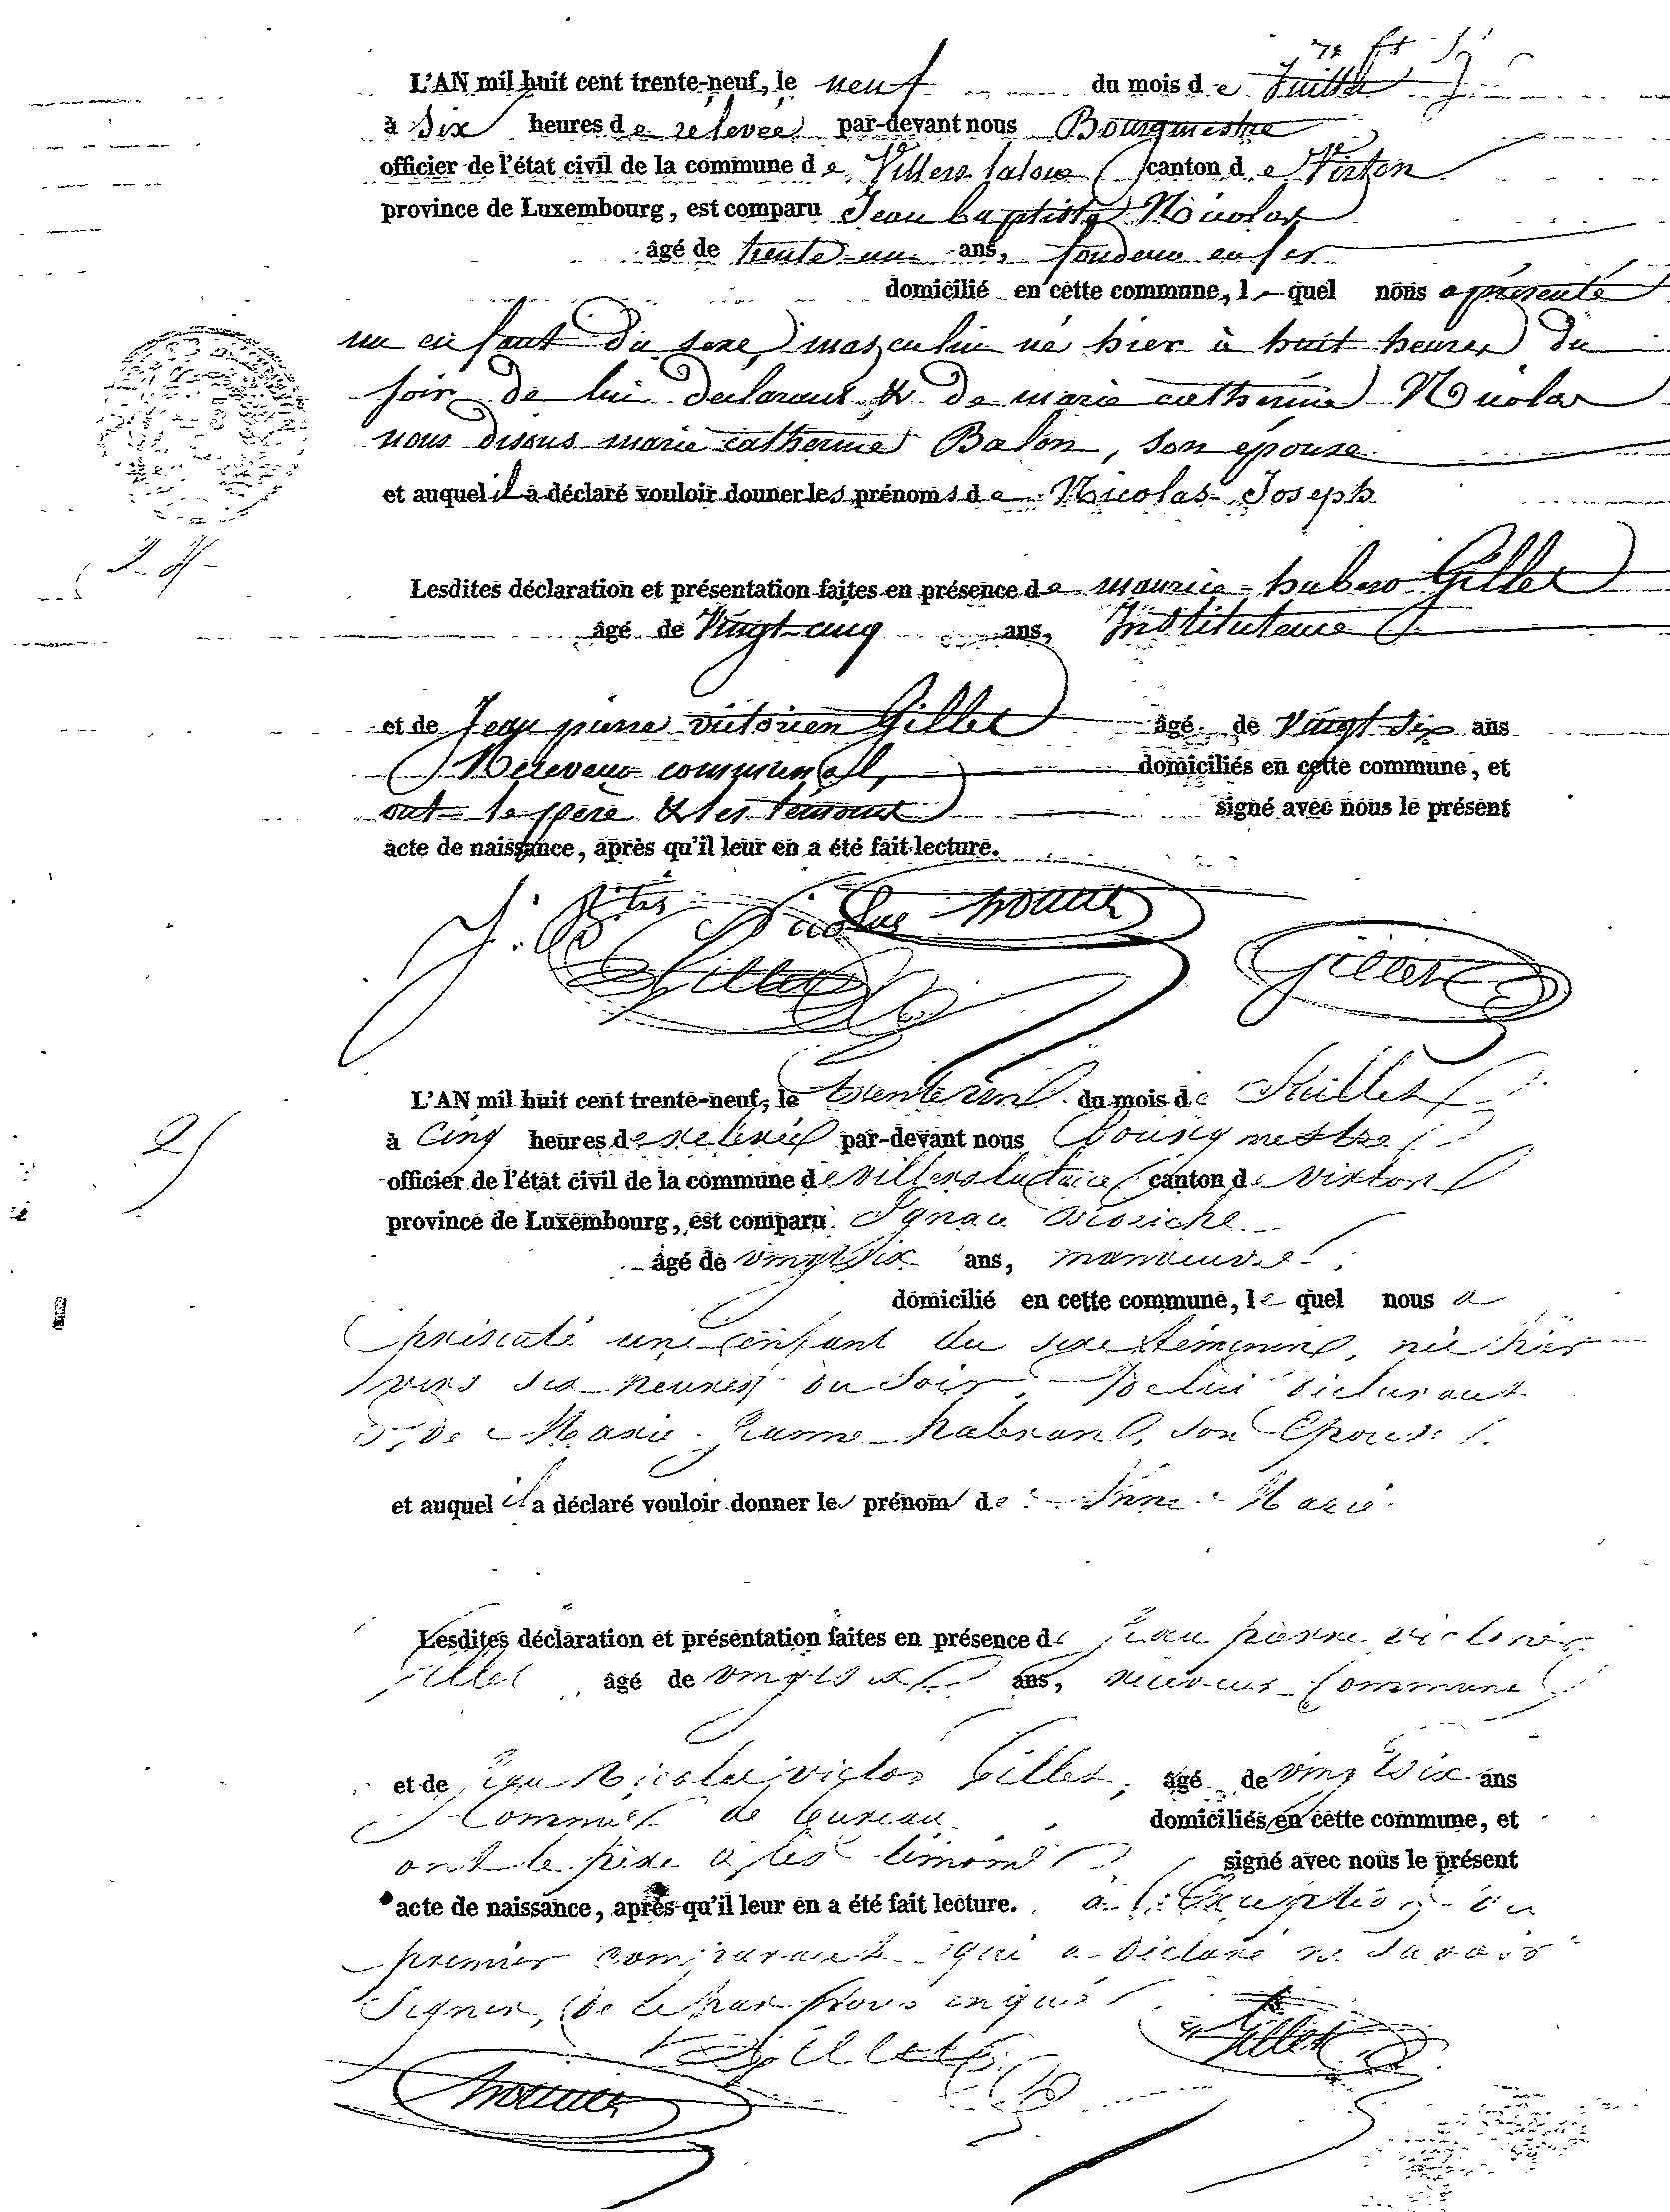 L'AN mil huit cent trente-neuf, le neuf du mois de Juillet
à Six heures de relevée par-devant nous Bourgmestre
officier de l'état civil de la commune de Villers laloue canton de Virton
province de Luxembourg, est comparu Jean baptiste Nicolas
âgé de trente un ans, fondeur en fer
domicilié en cette commune, lequel nous a présenté
un enfant du sexe masculin né hier à huit heures du
soir de lui déclarant & de marie catherine Nicolas
nous disons marie catherine Balon, son épouse
et auquel il a déclaré vouloir donner les prénoms de Nicolas Joseph
28
Lesdites déclaration et présentation faites en présence de maurice hubert Gillet
âgé de Vingt cinq ans, Instituteur
et de Jean pierre victorien Gillet âgé de Vingt Six ans
Receveur communal, domiciliés en cette commune, et
ont le père & les témoins signé avec nous le présent
acte de naissance, après qu'il leur en a été fait lecture.
J. Btes Nicolas
Gillet Gillet
L'AN mil huit cent trente-neuf, le trente un du mois de Juillet
à Cinq heures de relevée par-devant nous bourgmestre
officier de l'état civil de la commune de villers canton de virton
province de Luxembourg, est comparu Ignace
âgé de vingt six ans, manoeuvre
domicilié en cette commune, lequel nous a
présenté une enfant du sexe féminin, née hier
vers six heures du Soir, de lui déclarant
& de Marie Jeanne habran, son Epouse
et auquel il a déclaré vouloir donner les prénom de Anne Marie
Lesdites déclaration et présentation faites en présence de jean pierre victorien
Gillet âgé de vingt six ans, receveur Communal
et de jean Nicolas victor Gillet, âgé de vingt six ans
Commis de bureau domiciliés en cette commune, et
ont le père & les témoins signé avec nous le présent
acte de naissance, après qu'il leur en a été fait lecture. à l'Exception du
premier comparant qui a déclaré ne savoir
Signer, de ce par Nous enquis
Gillet Gillet